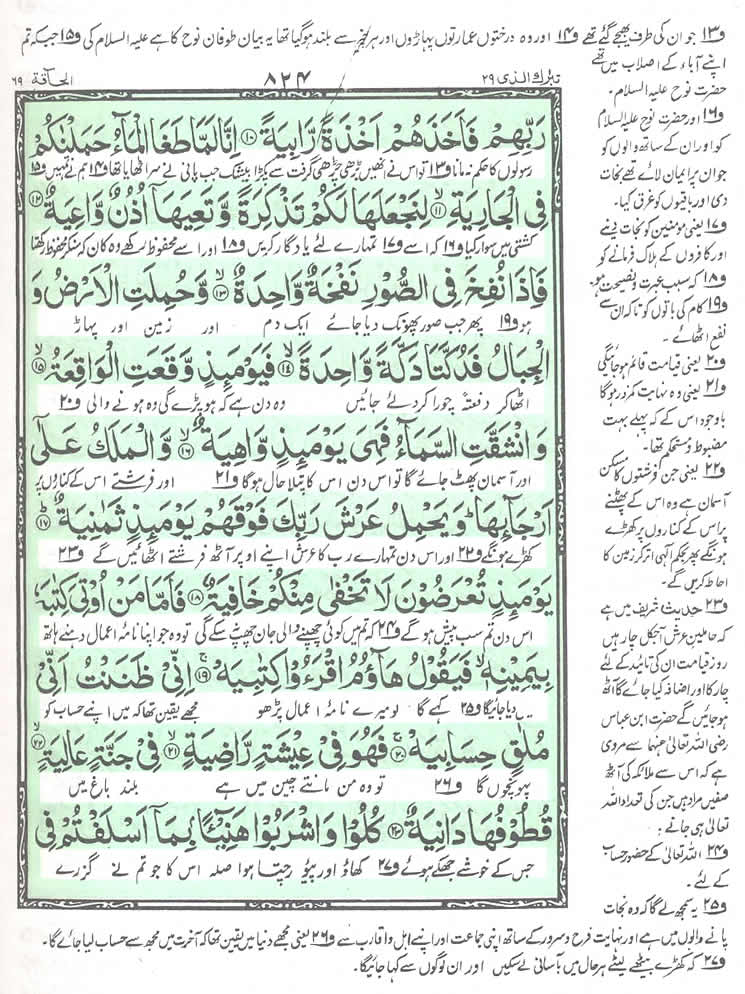 و۱۳ جو ان کی طرف بھیجے گئے تھے و۱۴ اور وہ درختوں عمارتوں پہاڑوں اور ہر چیز سے بلند ہوگیا تھا یہ بیان طوفان نوح کا ہے علیہ السلام کی و۱۵ جبکہ تم
اپنے آباء کے اصلاب میں تھے
حضرت نوح علیہ السلام۔
و۱۶ اور حضرت نوح علیہ السلام
کو اور ان کے ساتھ والوں کو
جو ان پر ایمان لائے تھے نجات
دی اور باقیوں کو غرق کیا۔
و۱۷ یعنی مؤمنین کو نجات دینے
اور کافروں کے ہلاک فرمانے کو
و۱۸ کہ سبب عبرت و نصیحت ہو
و۱۹ کام کی باتوں کو تاکہ ان سے
نفع اٹھائے۔
و۲۰ یعنی قیامت قائم ہوجائیگی
و۲۱ یعنی وہ نہایت کمزور ہوگا
باوجود اس کے کہ پہلے بہت
مضبوط و مستحکم تھا۔
و۲۲ یعنی جن فرشتوں کا مسکن
آسمان ہے وہ اس کے پھٹنے
پر اس کے کناروں پر کھڑے
ہونگے پھر بحکم الٰہی اتر کر زمین کا
احاطہ کریں گے۔
و۲۳ حدیث شریف میں ہے
کہ حاملین عرش آجکل چار ہیں
روز قیامت ان کی تائید کے لئے
چار کا اور اضافہ کیا جائے گا آٹھ
ہوجائیں گے حضرت ابن عباس
رضی اللہ تعالیٰ عنہما سے مروی
ہے کہ اس سے ملائکہ کی آٹھ
صفیں مراد ہیں جن کی تعداد اللہ
تعالیٰ ہی جانے۔
و۲۴ اللہ تعالیٰ کے حضور حساب
کے لئے۔
و۲۵ یہ سمجھ لے گا کہ وہ نجات
تبٰرك الذی ۲۹
۸۲۴
الحآقة ۶۹
رَبِّهِمْ فَاَخَذَهُمْ اَخْذَةً رَّابِيَةً ۝۱۰ اِنَّا لَمَّا طَغَا الْمَآءُ حَمَلْنٰكُمْ
رسولوں کا حکم نہ مانا و۱۳ تو اس نے انھیں بڑھی چڑھی گرفت سے پکڑا بیشک جب پانی نے سر اٹھایا تھا و۱۴ ہم نے تمہیں و۱۵
فِى الْجَارِيَةِ ۝۱۱ لِنَجْعَلَهَا لَكُمْ تَذْكِرَةً وَّتَعِيَهَاۤ اُذُنٌ وَّاعِيَةٌ ۝۱۲
کشتی میں سوار کیا و۱۶ کہ اسے و۱۷ تمہارے لئے یادگار کریں و۱۸ اور اسے محفوظ رکھے وہ کان کہ سنکر محفوظ رکھتا
فَاِذَا نُفِخَ فِى الصُّوْرِ نَفْخَةٌ وَّاحِدَةٌ ۝۱۳ وَّحُمِلَتِ الْاَرْضُ وَ
ہو و۱۹ پھر جب صور پھونک دیا جائے ایک دم اور زمین اور پہاڑ
الْجِبَالُ فَدُكَّتَا دَكَّةً وَّاحِدَةً ۝۱۴ فَيَوْمَئِذٍ وَّقَعَتِ الْوَاقِعَةُ ۝۱۵
اٹھا کر دفعتہً چورا کردئے جائیں وہ دن ہے کہ ہو پڑے گی وہ ہونے والی و۲۰
وَانْشَقَّتِ السَّمَآءُ فَهِىَ يَوْمَئِذٍ وَّاهِيَةٌ ۝۱۶ وَّالْمَلَكُ عَلٰٓى
اور آسمان پھٹ جائے گا تو اس دن اس کا پتلا حال ہوگا و۲۱ اور فرشتے اس کے کناروں پر
اَرْجَآئِهَا ؕ وَيَحْمِلُ عَرْشَ رَبِّكَ فَوْقَهُمْ يَوْمَئِذٍ ثَمٰنِيَةٌ ۝۱۷
کھڑے ہونگے و۲۲ اور اس دن تمہارے رب کا عرش اپنے اوپر آٹھ فرشتے اٹھائیں گے و۲۳
يَوْمَئِذٍ تُعْرَضُوْنَ لَا تَخْفٰى مِنْكُمْ خَافِيَةٌ ۝۱۸ فَاَمَّا مَنْ اُوْتِىَ كِتٰبَهٗ
اس دن تم سب پیش ہوگے و۲۴ کہ تم میں کوئی چھپنے والی جان چھپ نہ سکے گی تو وہ جو اپنا نامۂ اعمال دہنے ہاتھ
بِيَمِيْنِهٖ ۙ فَيَقُوْلُ هَآؤُمُ اقْرَءُوْا كِتٰبِيَهْ ۝۱۹ اِنِّىْ ظَنَنْتُ اَنِّىْ
میں دیا جائیگا و۲۵ کہے گا لو میرے نامۂ اعمال پڑھو مجھے یقین تھا کہ میں اپنے حساب کو
مُلٰقٍ حِسَابِيَهْ ۝۲۰ فَهُوَ فِىْ عِيْشَةٍ رَّاضِيَةٍ ۝۲۱ فِىْ جَنَّةٍ عَالِيَةٍ ۝۲۲
پہونچوں گا و۲۶ تو وہ من مانتے چین میں ہے بلند باغ میں
قُطُوْفُهَا دَانِيَةٌ ۝۲۳ كُلُوْا وَاشْرَبُوْا هَنِيْٓئًاۢ بِمَاۤ اَسْلَفْتُمْ فِى
جس کے خوشے جھکے ہوئے و۲۷ کھاؤ اور پیو رچتا ہوا صلہ اس کا جو تم نے گزرے
پانے والوں میں ہے اور نہایت فرح و سرور کے ساتھ اپنی جماعت اور اپنے اہل و اقارب سے و۲۶ یعنی مجھے دنیا میں یقین تھا کہ آخرت میں مجھ سے حساب لیا جائے گا۔
و۲۷ کہ کھڑے بیٹھے لیٹے ہر حال میں بآسانی لے سکیں اور ان لوگوں سے کہا جائیگا۔